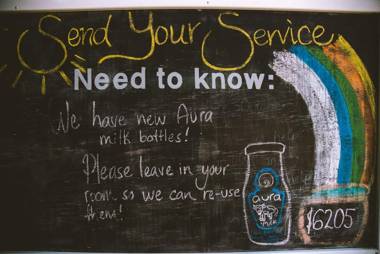 Send Your Service
Need to know:
We have new Aura
milk bottles!
Please leave in your
room so we can re-use
them!
aura
$6205